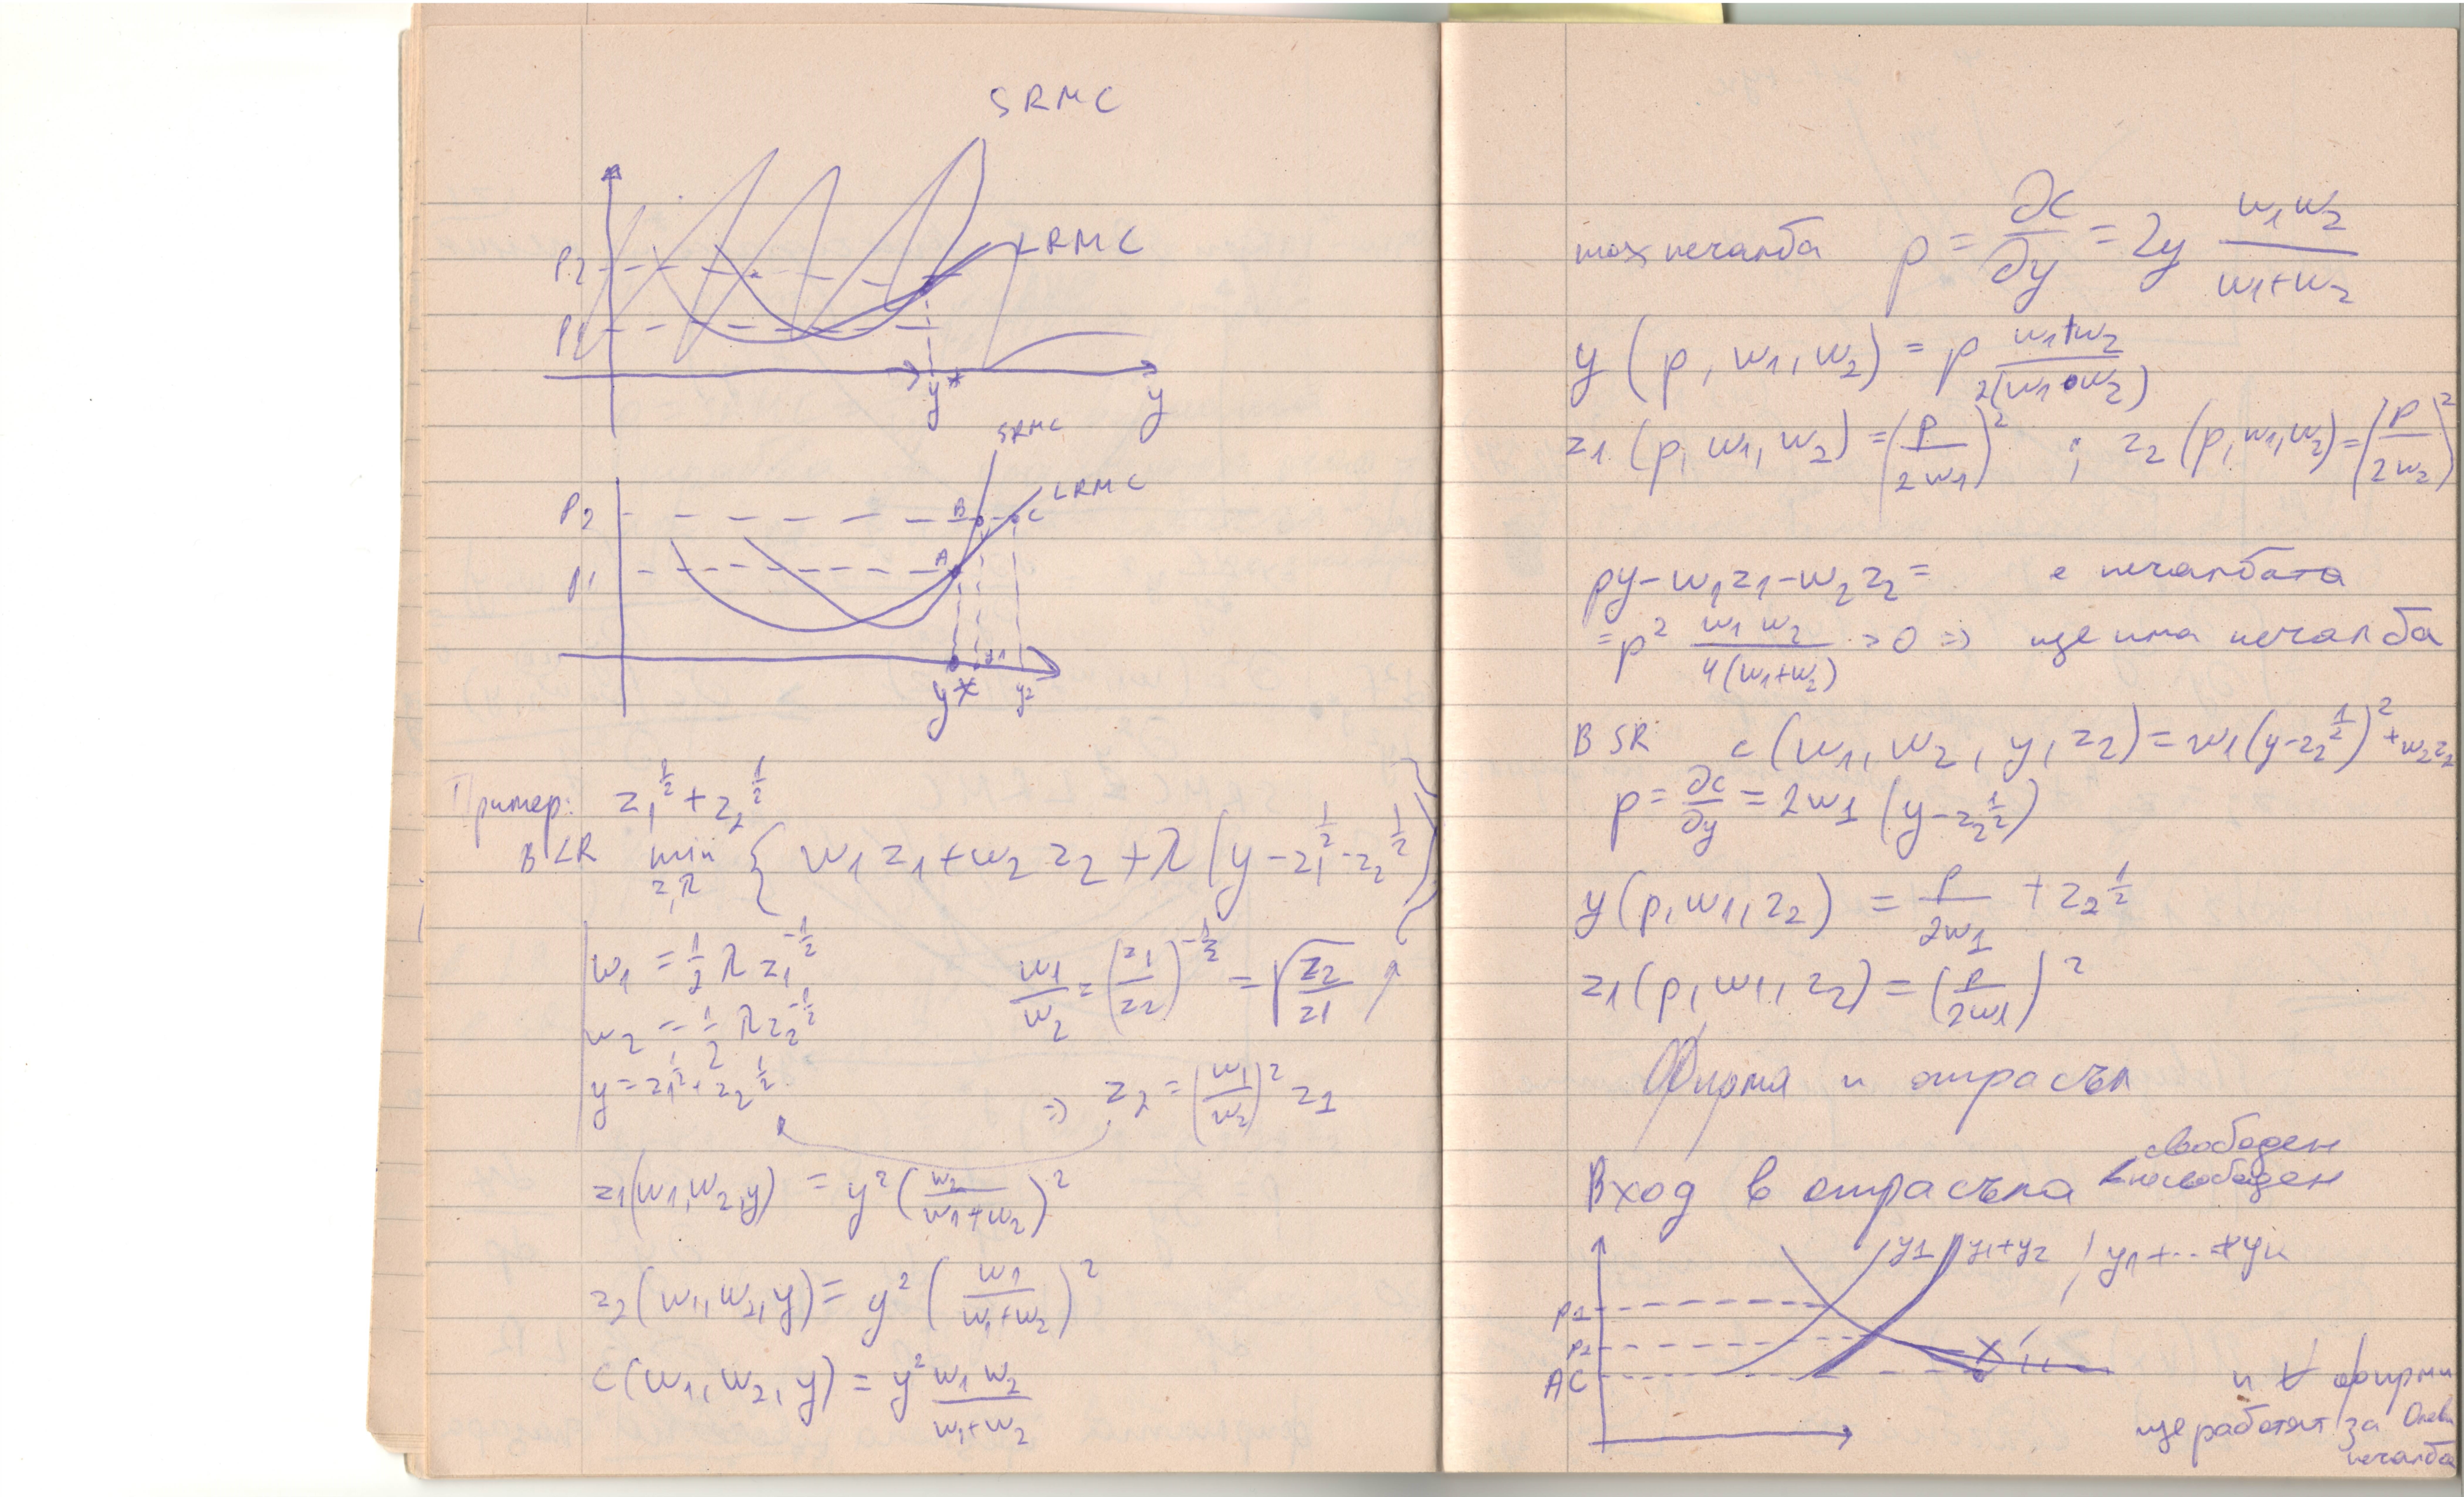 SRMC
LRMC
P2
P1
y*
y
SRMC
LRMC
P2
B
C
A
P1
y*
y1
y2
Пример: z₁^½ + z₂^½
В LR min z,λ { w₁z₁ + w₂z₂ + λ(y - z₁^½ - z₂^½) }
w₁ = ½ λ z₁^-½
w₂ = ½ λ z₂^-½
y = z₁^½ + z₂^½
w₁/w₂ = (z₁/z₂)^-½ = √(z₂/z₁)
=> z₂ = (w₁/w₂)² z₁
z₁(w₁,w₂,y) = y² (w₂/(w₁+w₂))²
z₂(w₁,w₂,y) = y² (w₁/(w₁+w₂))²
c(w₁,w₂,y) = y² w₁w₂/(w₁+w₂)
max печалба p = ∂c/∂y = 2y w₁w₂/(w₁+w₂)
y(p,w₁,w₂) = p (w₁+w₂)/2(w₁•w₂)
z₁(p,w₁,w₂) = (p/2w₁)² ; z₂(p,w₁,w₂) = (p/2w₂)²
py - w₁z₁ - w₂z₂ = е печалбата
= p² w₁w₂/4(w₁+w₂) > 0 => ще има печалба
В SR c(w₁,w₂,y,z₂) = w₁(y - z₂^½)² + w₂z₂
p = ∂c/∂y = 2w₁(y - z₂^½)
y(p,w₁,z₂) = p/2w₁ + z₂^½
z₁(p,w₁,z₂) = (p/2w₁)²
Фирма и отрасъл
свободен
Вход в отрасъла < несвободен
y1 y1+y2 y1+...+yn
P1
P2
AC
и ∀ фирми
ще работят за
печалба